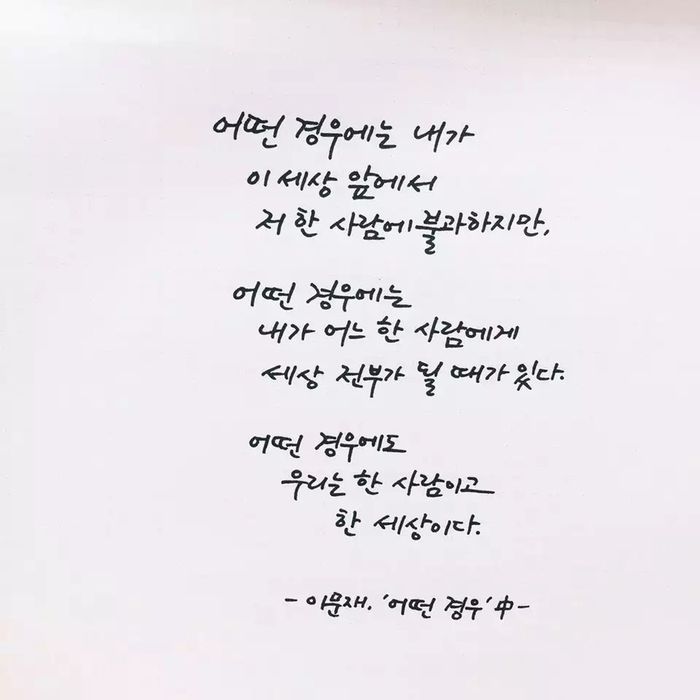 어떤 경우에는 내가
이 세상 앞에서
저 한 사람에 불과하지만,
어떤 경우에는
내가 어느 한 사람에게
세상 전부가 될 때가 있다.
어떤 경우에도
우리는 한 사람이고
한 세상이다.
- 이문재. '어떤 경우' 中 -